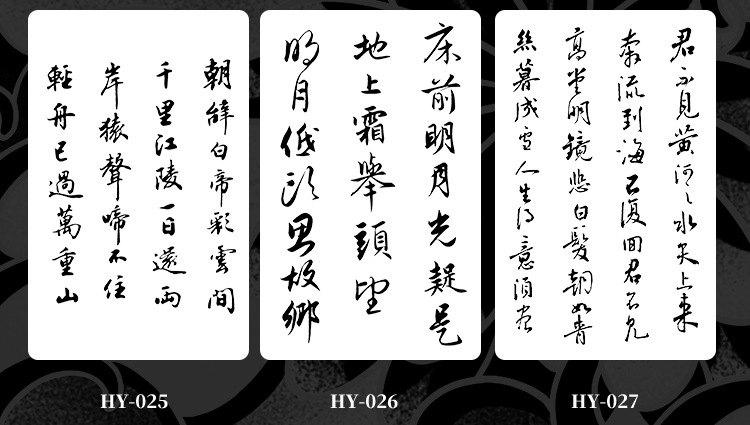 朝辭白帝彩雲間
千里江陵一日還兩
岸猿聲啼不住
輕舟已過萬重山
HY-025
床前明月光疑是
地上霜舉頭望
明月低頭思故鄉
HY-026
君不見黃河之水天上來
奔流到海不復回君不見
高堂明鏡悲白髮朝如青
絲暮成雪人生得意須盡
HY-027